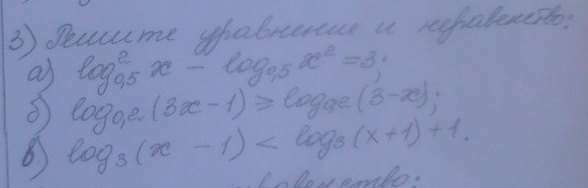 3) Решите уравнение и неравенство:
а) log²₀,₅ x − log₀,₅ x² = 3;
б) log₀,₂ (3x−1) ≥ log₀,₂ (3−x);
в) log₃ (x −1) < log₃ (x+1)+1.